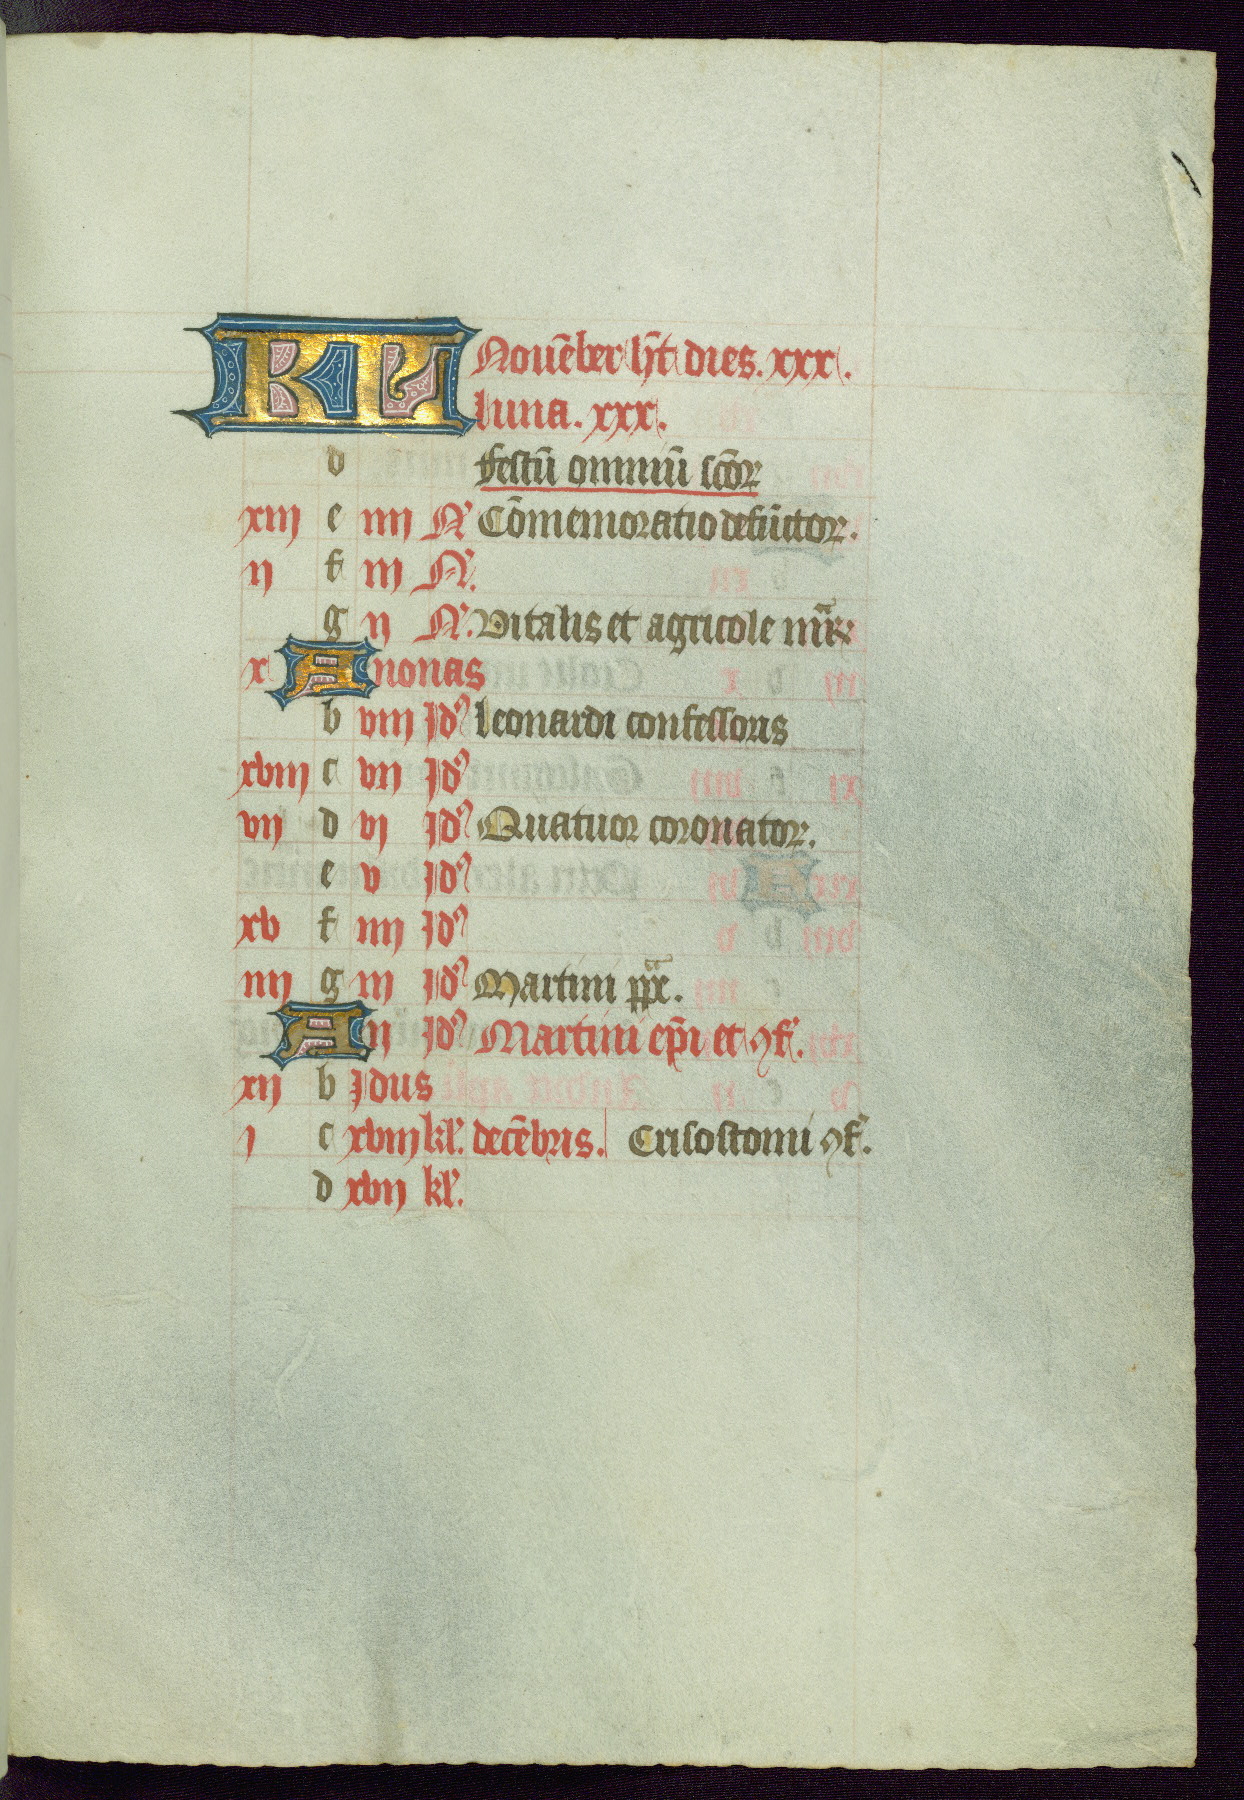 KL Nouēber hn̄t dies. xxx.
luna. xxx.
d festū omniū sc̄oꝝ
xiij e iiij N̄ Cōmemoratio defūctoꝝ.
ij f iij N̄.
g ij N̄. Vitalis et agricole mr̄ꝝ
x A nonas
b viij Jdꝰ leonardi confessoris
xviij c vij Jdꝰ
vij d vj Jdꝰ Quatuor coronatoꝝ.
e v Jdꝰ
xv f iiij Jdꝰ
iiij g iij Jdꝰ Martini pp̄e.
A ij Jdꝰ Martini ep̄i et ꝯf̄.
xij b Jdus
j c xviij kl̄. decēbris. Crisostomi ꝯf̄.
d xvij kl̄.